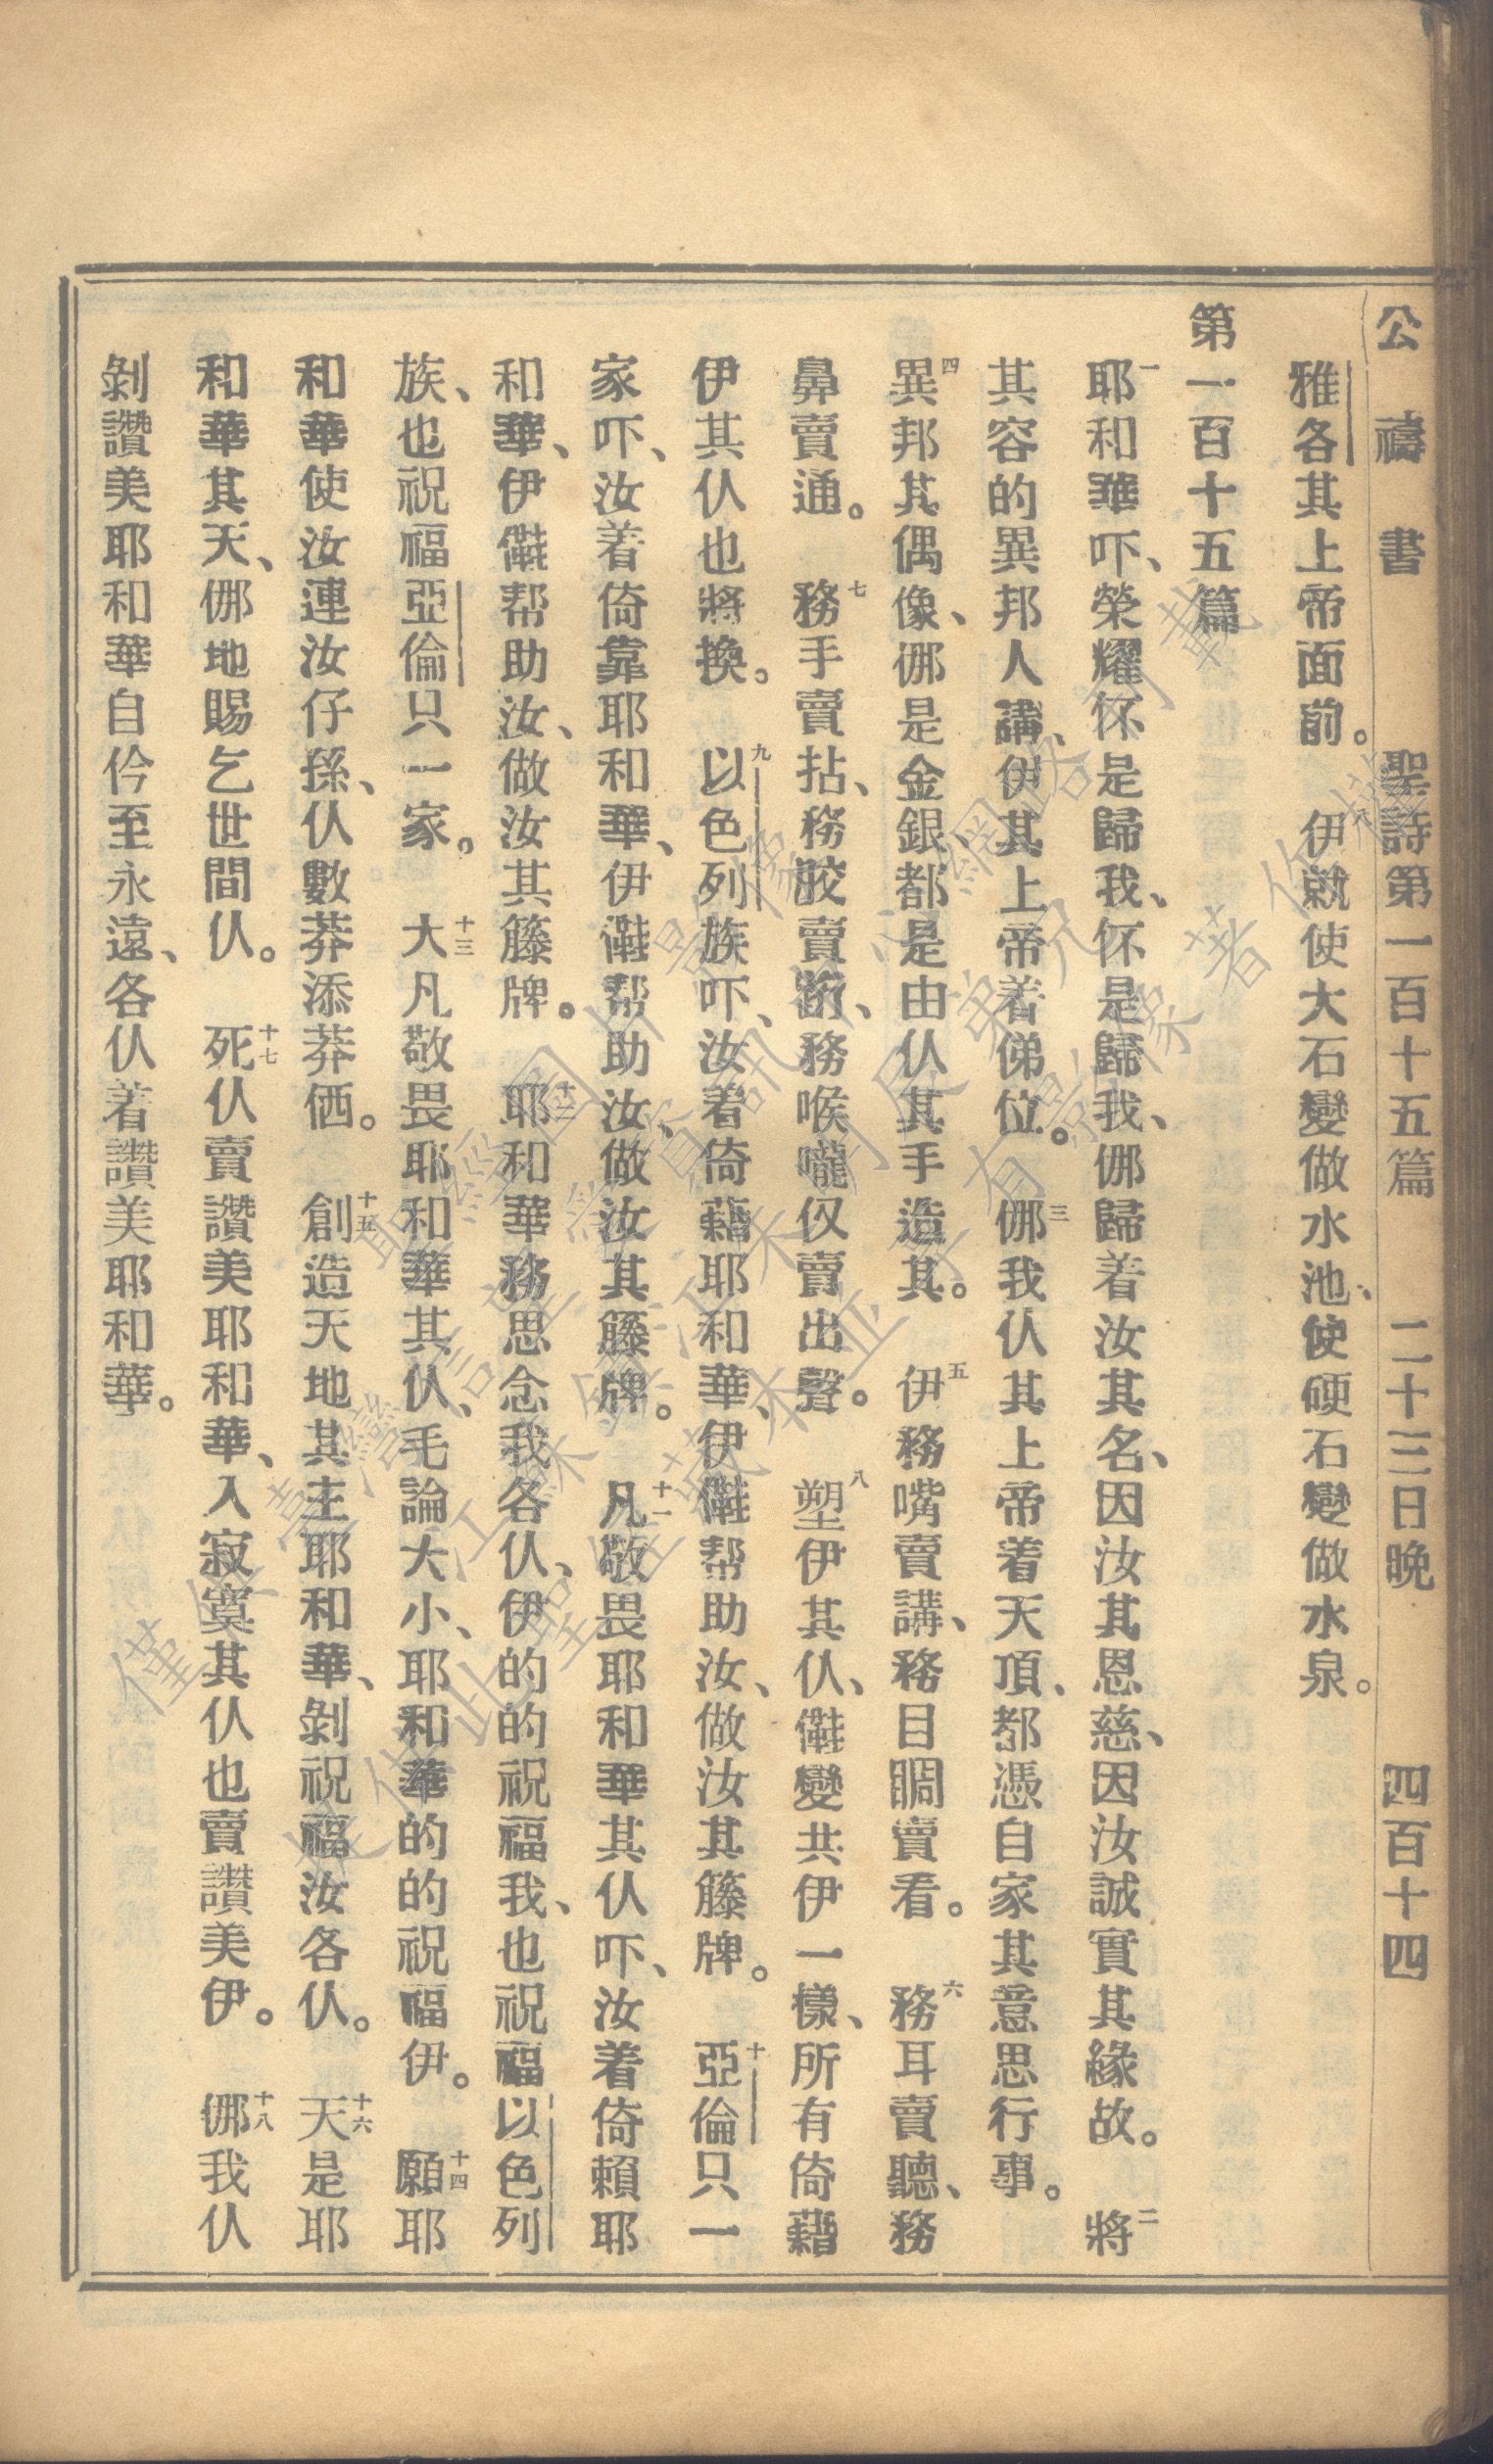 公禱書 聖詩第一百十五篇 二十三日晚 四百十四
雅各其上帝面前。 八伊就使大石變做水池、使硬石變做水泉。
第一百十五篇
一耶和華吓、榮耀怀是歸我、怀是歸我、倻歸着汝其名、因汝其恩慈、因汝誠實其緣故。 二將
其容的異邦人講、伊其上帝着俤位。 三倻我仈其上帝着天頂、都憑自家其意思行事。
四異邦其偶像、倻是金銀、都是由仈其手造其。 五伊務嘴賣講、務目睭賣看。 六務耳賣聽、務
鼻賣通。 七務手賣拈、務骹賣跴、務喉嚨仅賣出聲。 八塑伊其仈、儺變共伊一樣、所有倚藉
伊其仈也將換。 九以色列族吓、汝着倚藉耶和華、伊儺帮助汝、做汝其籐牌。 十亞倫只一
家吓、汝着倚靠耶和華、伊儺帮助汝、做汝其籐牌。 十一凡敬畏耶和華其仈吓、汝着倚賴耶
和華、伊儺帮助汝、做汝其籐牌。 十二耶和華務思念我各仈、伊的的祝福我、也祝福以色列
族、也祝福亞倫只一家。 十三大凡敬畏耶和華其仈、毛論大小、耶和華的的祝福伊。 十四願耶
和華使汝連汝仔孫、仈數莽添莽㑚。 十五創造天地其主耶和華、剝祝福汝各仈。 十六天是耶
和華其天、倻地賜乞世間仈。 十七死仈賣讚美耶和華、入寂寞其仈也賣讚美伊。 十八倻我仈
剝讚美耶和華自伶至永遠、各仈着讚美耶和華。